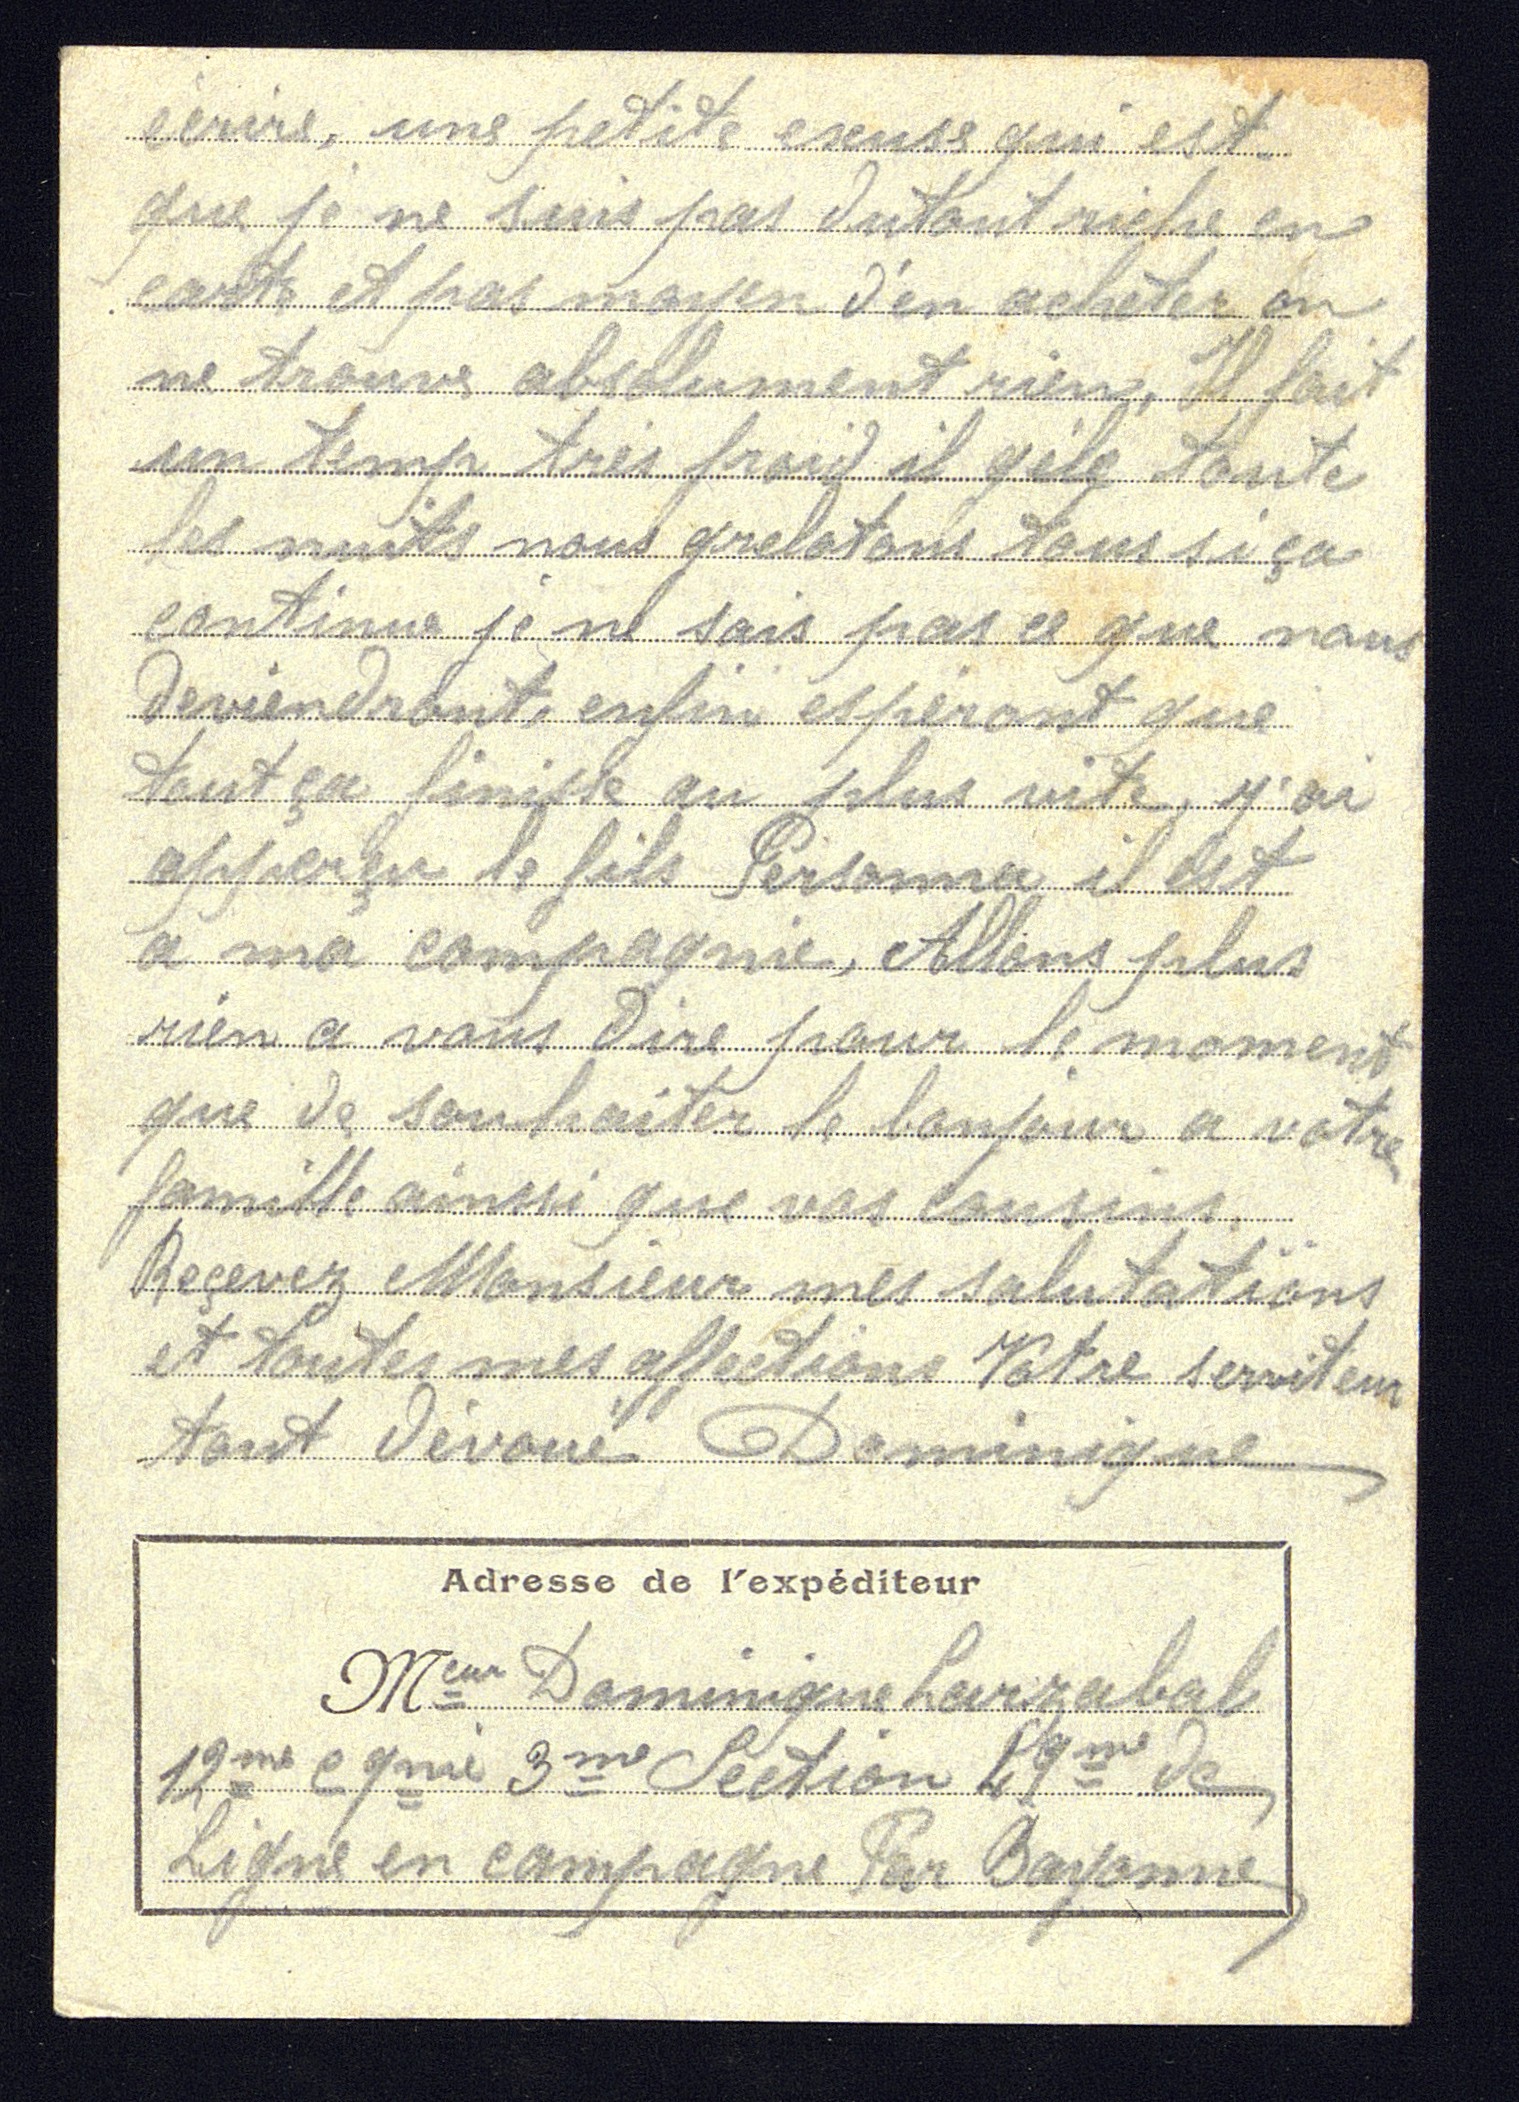 écrire, une petite excuse qui est
que je ne suis pas dutout riche en
carte et pas moyen d'en acheter on
ne trouve absolument rien, Il fait
un temp très froid il gèle toute
les nuits nous grelotons tous si ça
continue je ne sais pas ce que nous
deviendront, enfin espèront que
tout ça finisse au plus vite, y'ai
apperçu le fils Personna il est
a ma compagnie, Allons plus
rien a vous dire pour le moment
que de souhaiter le bonjour a votre
famille ainssi que vos cousins.
Reçevez Monsieur mes salutations
et toutes mes affections Votre serviteur
tout dévoué Dominique
Adresse de l'expéditeur
Meur Dominique Larrzabal
12me cgnie 3me Section 49me de
Ligne en campagne Par Bayonne